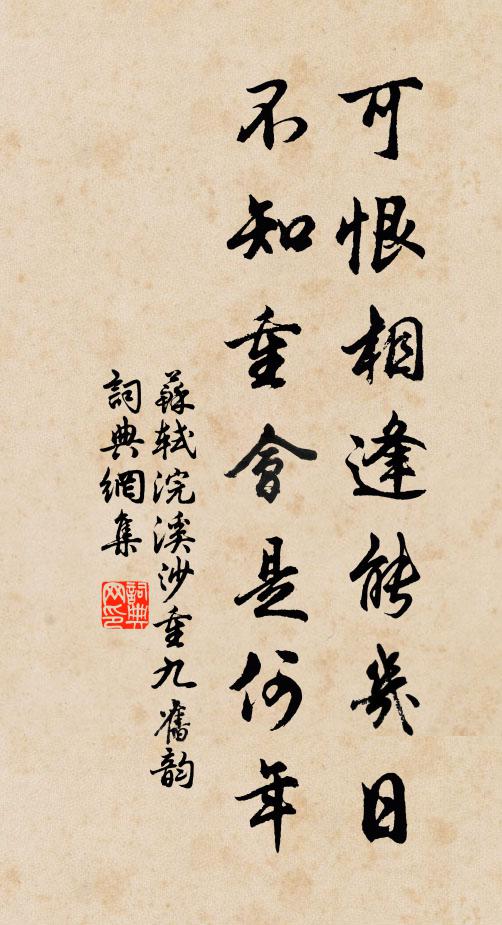 可恨相逢能幾日
不知重會是何年
蘇軾浣溪沙重九舊韵
詞典網集
詞典网印